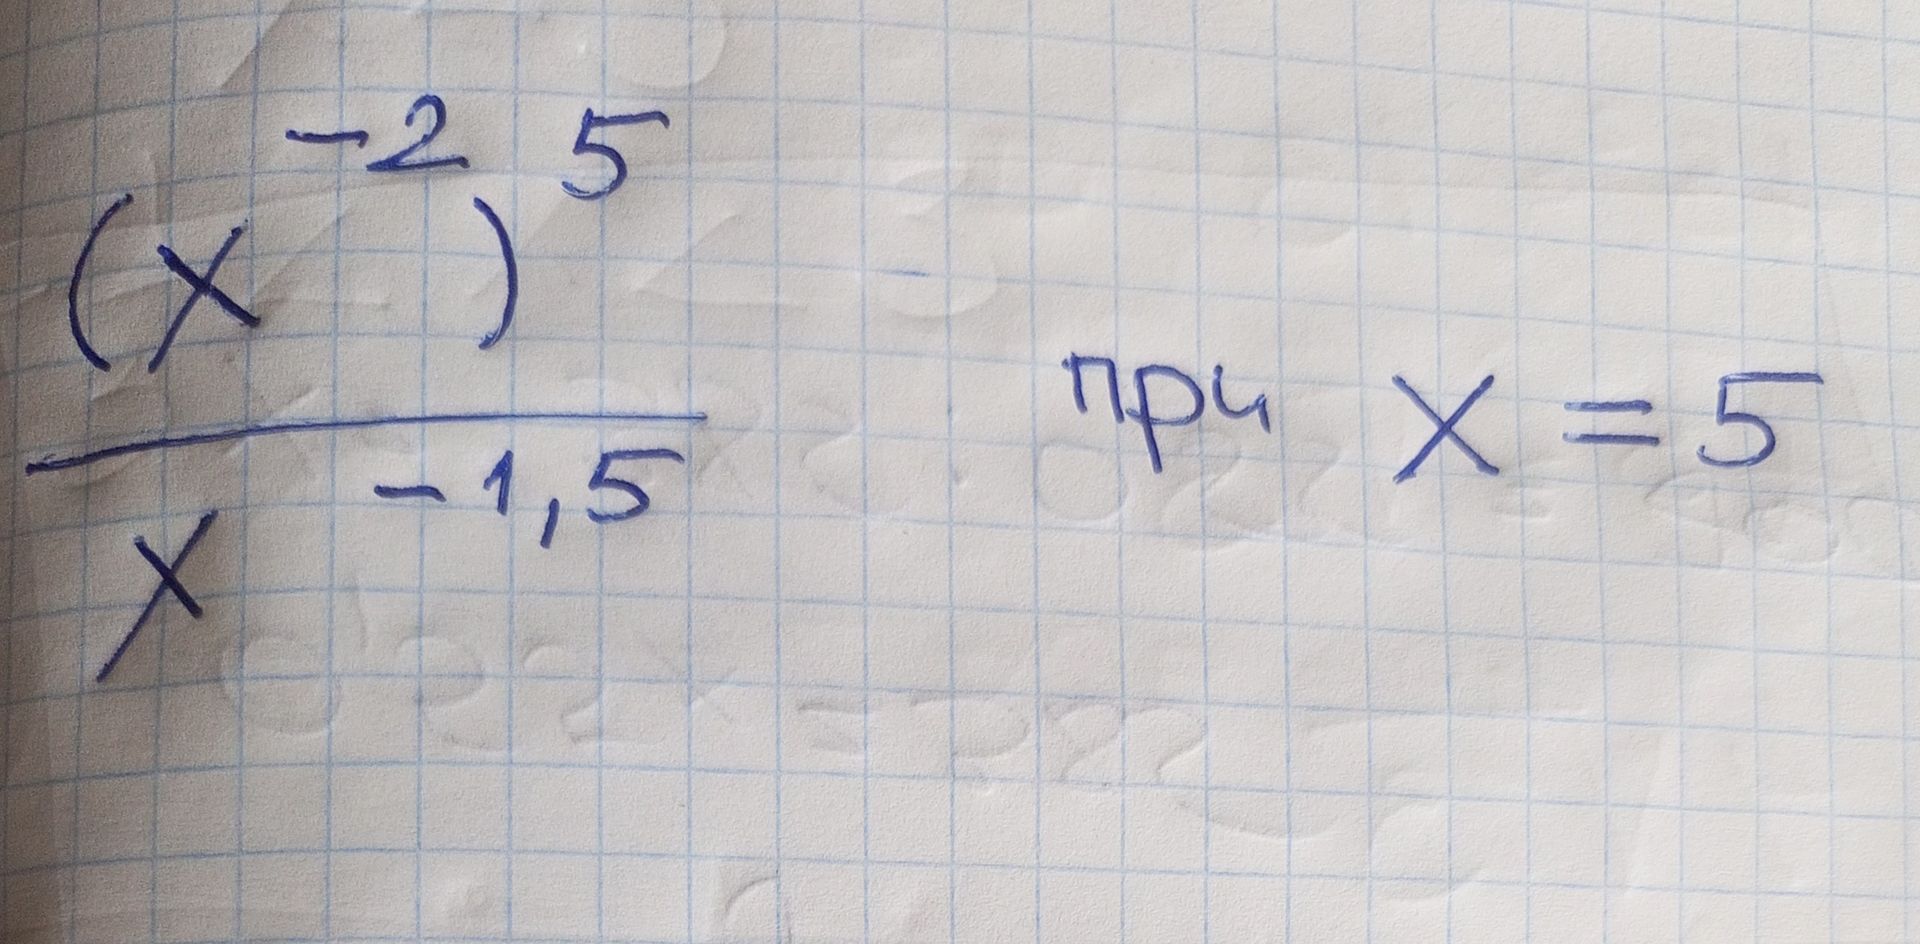 (x^-2)^5
x^-1,5
при x = 5